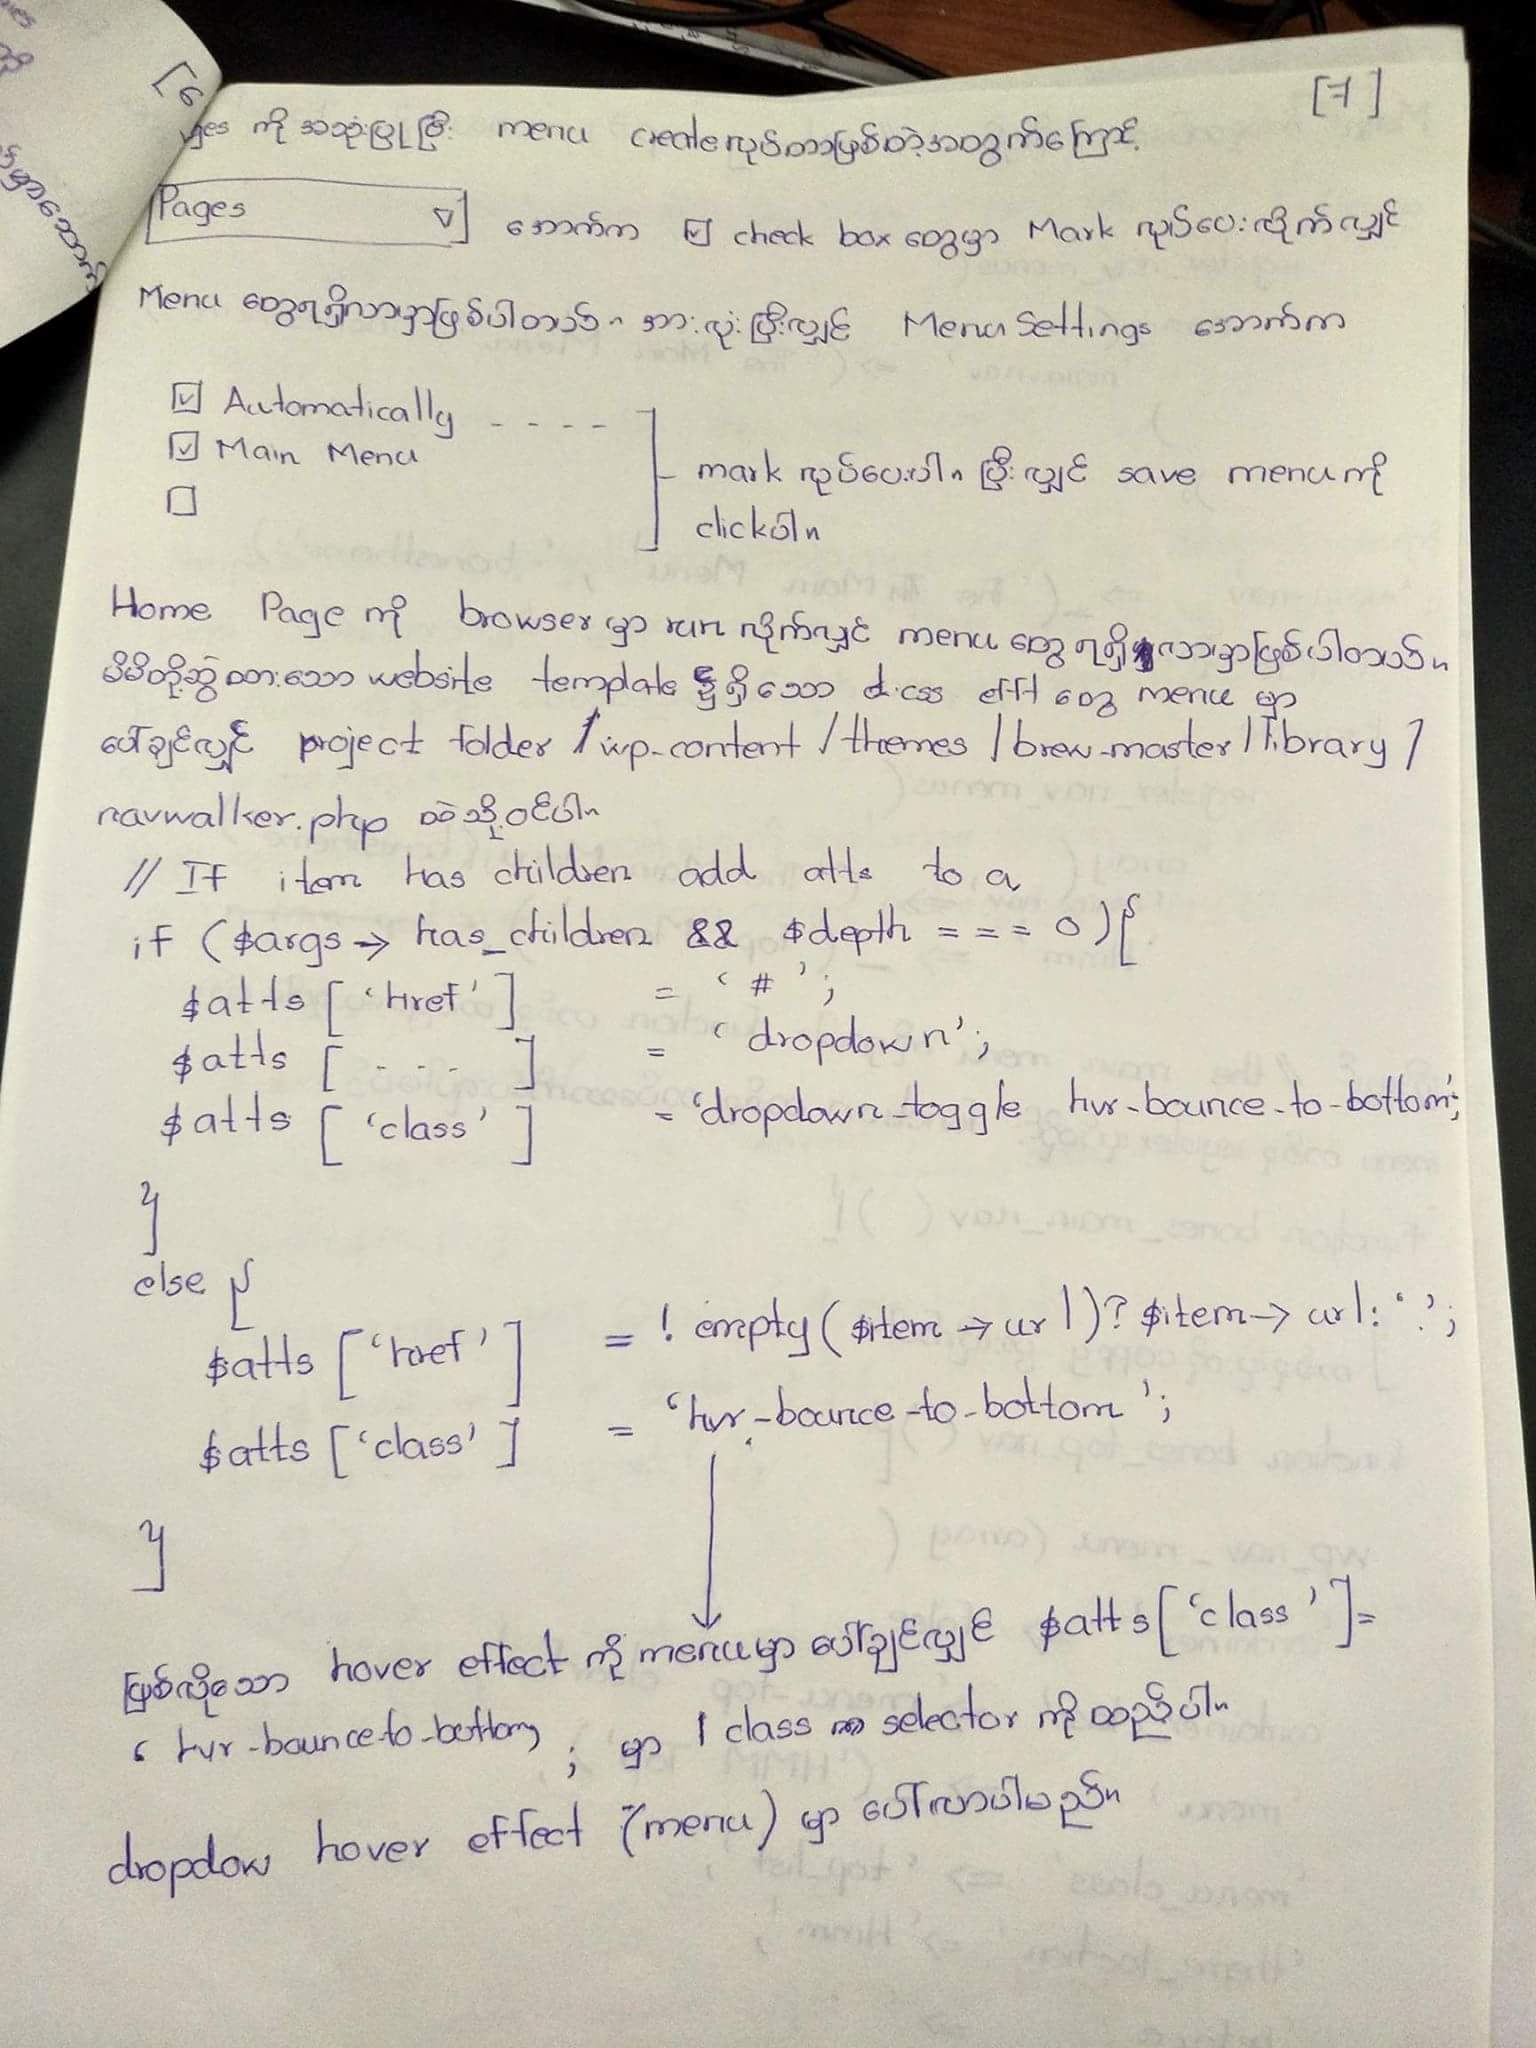 [7]
ges ကို အသုံးပြုပြီး menu create လုပ်တာဖြစ်တဲ့အတွက်ကြောင့်
Pages အောက်က check box တွေမှာ Mark လုပ်ပေးလိုက်လျှင်
Menu တွေရရှိလာမှာဖြစ်ပါတယ်။ အားလုံးပြီးလျှင် Menu Settings အောက်က
Automatically ----
Main Menu
mark လုပ်ပေးပါ။ ပြီးလျှင် save menu ကို
click ပါ။
Home Page ကို browser မှာ run လိုက်လျှင် menu တွေ ရရှိလာမှာဖြစ်ပါတယ်။
မိမိတို့ဆွဲထားသော website template ၌ရှိသော css efft တွေ menu မှာ
ပေါ်ချင်လျှင် project folder /wp-content /themes /brew-master/library/
navwalker.php ထဲသို့ဝင်ပါ။
// If item has children add atts to a
if ($args-> has_children && $depth === 0){
$atts ['href'] = '#';
$atts [ --- ] = 'dropdown';
$atts ['class'] = 'dropdown-toggle hvr-bounce-to-bottom';
}
else {
$atts ['href'] = ! empty($item->url)? $item-> url: '.';
$atts ['class'] = 'hvr-bounce-to-bottom';
}
ဖြစ်လိုသော hover effect ကို menu မှာ ပေါ်ချင်လျှင် $atts['class']=
' hvr-bounce-to-bottom ; မှာ class selector ကို ထည့်ပါ။
dropdow hover effect (menu) မှာ ပေါ်လာပါမည်။